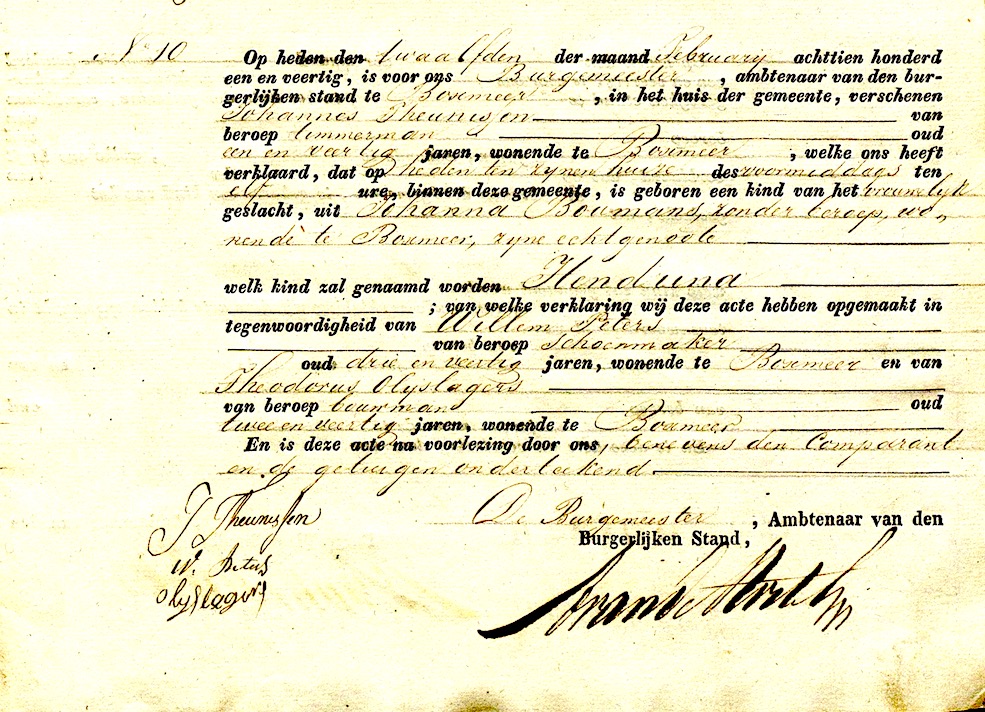 No 10 Op heden den twaalfden der maand February achttien honderd
een en veertig, is voor ons Burgemeester, ambtenaar van den bur-
gerlijken stand te Boxmeer, in het huis der gemeente, verschenen
Johannes Theunissen van
beroep timmerman oud
een en veertig jaren, wonende te Boxmeer, welke ons heeft
verklaard, dat op heden ten zynen huize des voormiddags ten
elf ure, binnen deze gemeente, is geboren een kind van het vrouwelijk
geslacht, uit Johanna Boumans, zonder beroep, wo-
nende te Boxmeer, zyne echtgenoote
welk kind zal genaamd worden Hendrina
; van welke verklaring wij deze acte hebben opgemaakt in
tegenwoordigheid van Willem Peters
van beroep schoenmaker
oud drie en veertig jaren, wonende te Boxmeer en van
Theodorus Olyslagers
van beroep bouwman oud
twee en veertig jaren, wonende te Boxmeer
En is deze acte na voorlezing door ons, benevens den Comparant
en de getuigen onderteekend.
De Burgemeester, Ambtenaar van den
Burgerlijken Stand,
J Theunissen
W. Peters
Olyslagers